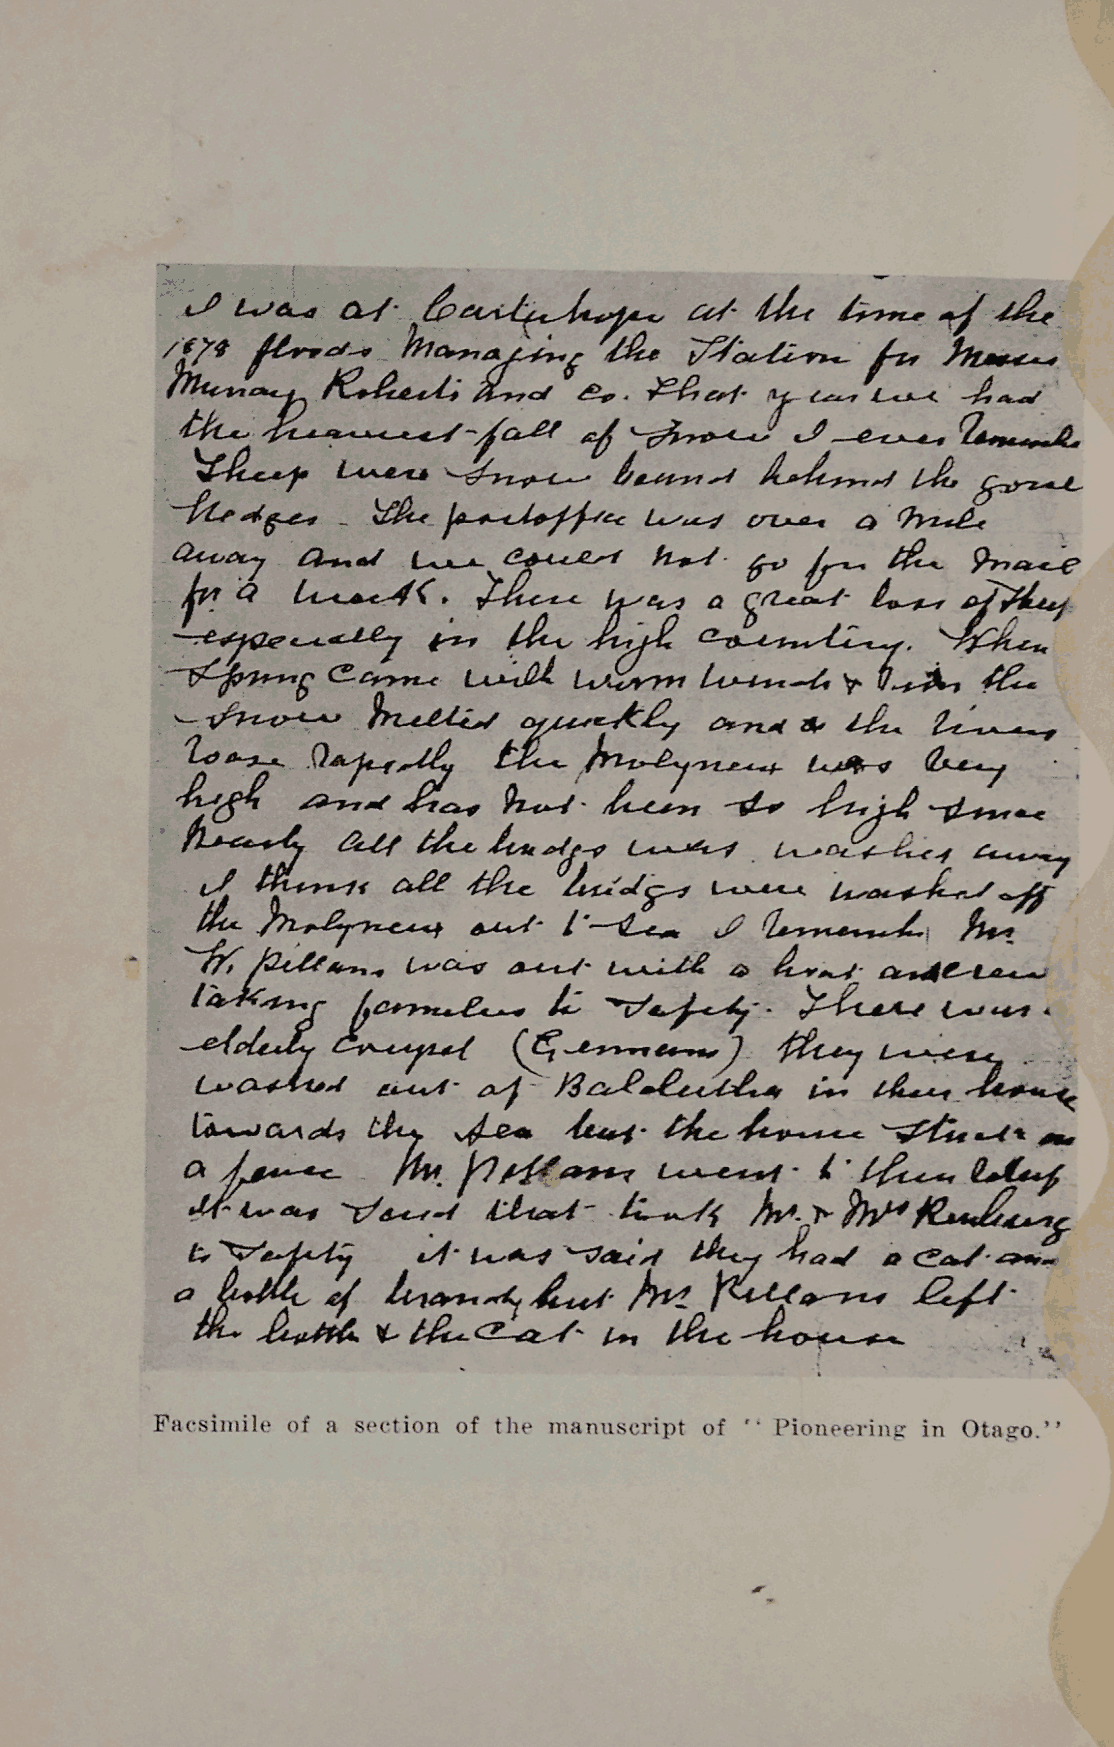 I was at Carterhope at the time of the
1878 floods Managing the Station for Messrs
Murray Roberts and Co. That year we had
the heaviest fall of snow I ever
Sheep were snow bound behind the gorse
hedges. The postoffice was over a mile
away and we could not go for the mail
for a week. There was a great loss of sheep
especially in the high country. When
Spring came with warm winds & the
snow melted quickly and the rivers
rose rapidly the Molyneux was very
high and has not been so high since
Nearly all the bridges was washed away
I think all the bridges were washed off
the Molyneux out to sea I remember Mr.
W. Pillans was out with a boat and crew
taking families to safety. There was
elderly (Germans) they were
washed out of Balclutha in their house
towards the sea but the house stuck on
a fence Mr. Pillans went to their
it was said that took Mr. & Mrs
to safety it was said they had a cat and
a bottle of brandy but Mr. Pillans left
the bottle & the cat in the house
Facsimile of a section of the manuscript of "Pioneering in Otago."